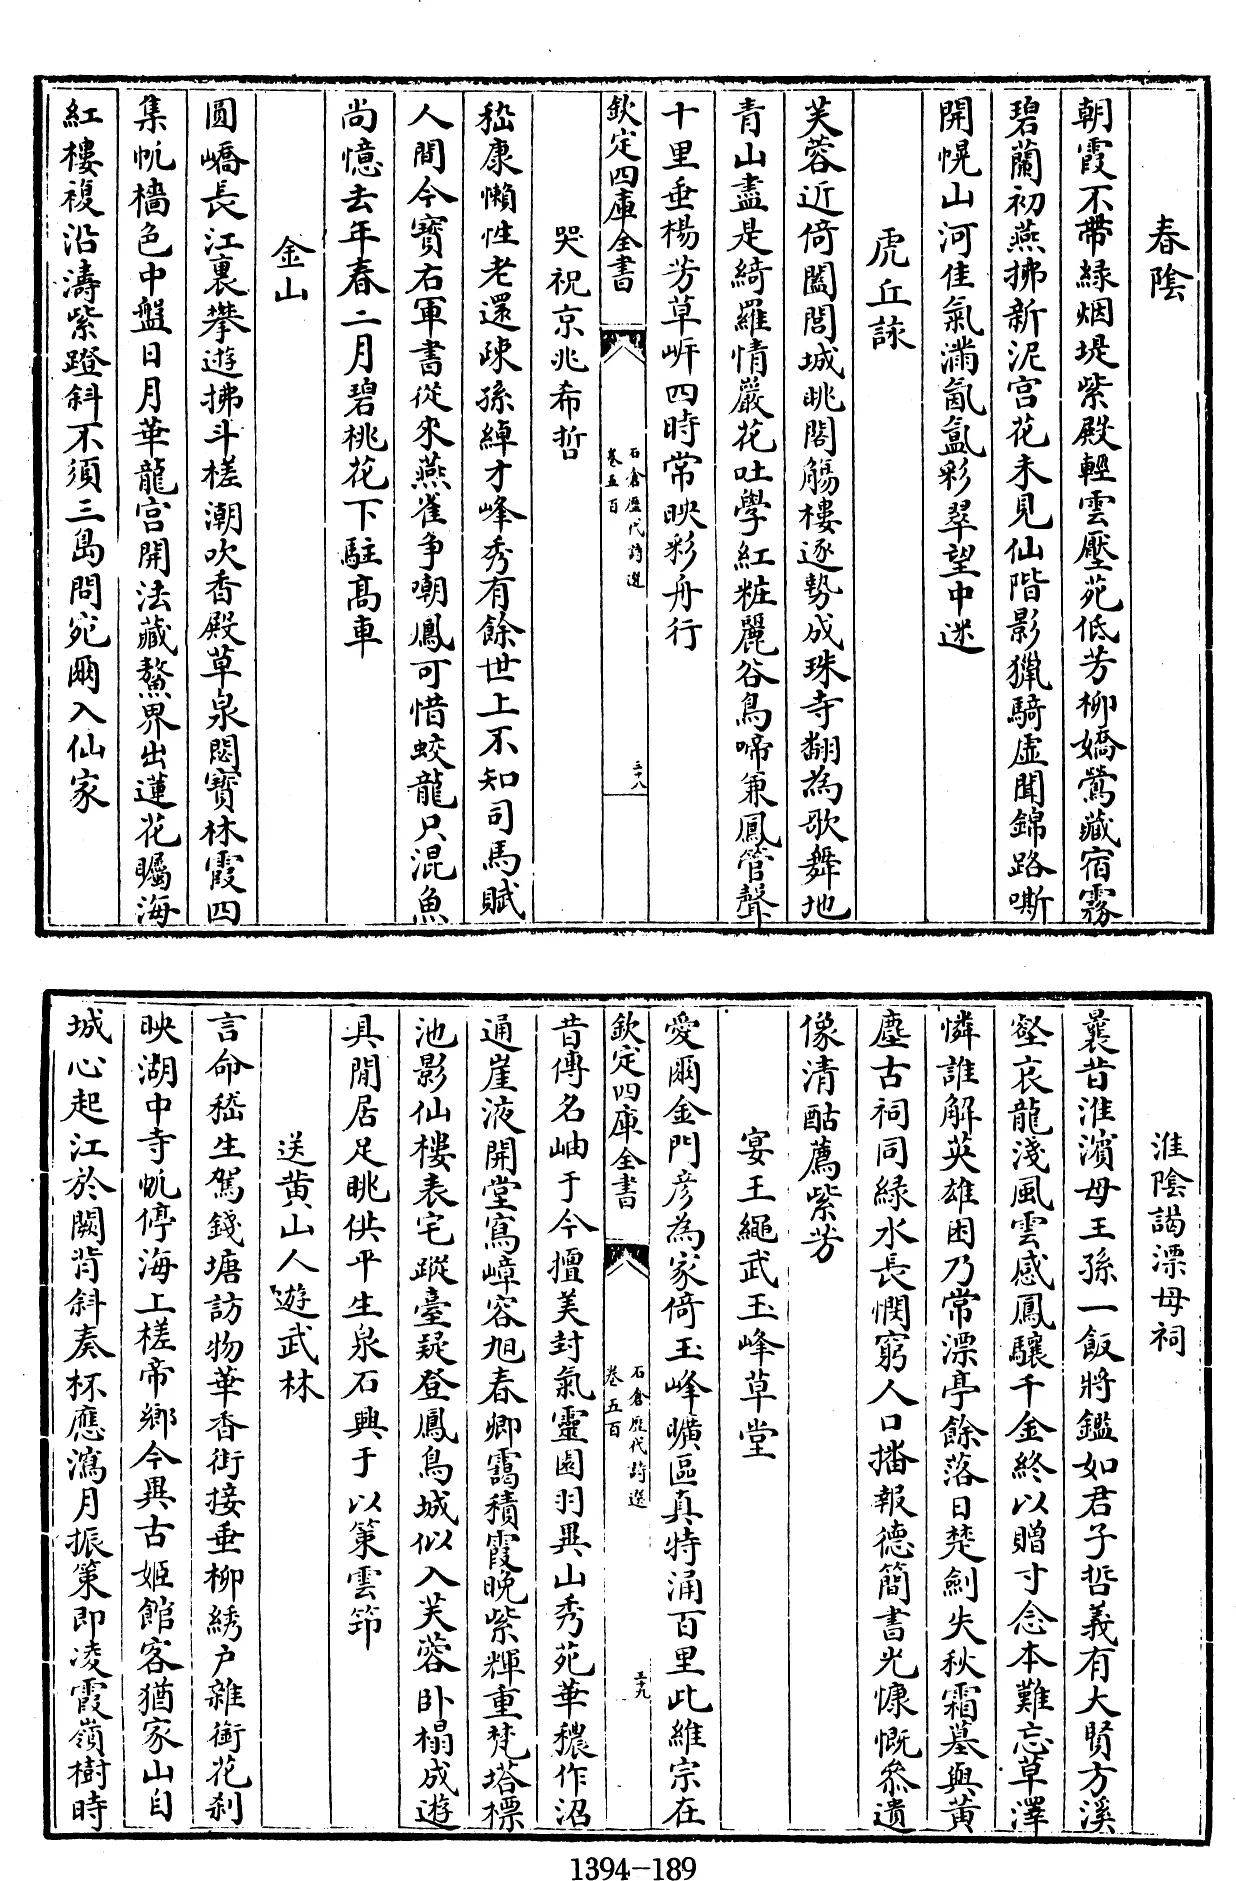 春陰
朝霞不帶緑烟堤紫殿輕雲壓苑低芳柳嬌鶯藏宿霧
碧蘭初燕拂新泥宫花未見仙階影獵騎虚聞錦路嘶
開幌山河佳氣滿氤氳彩翠望中迷
虎丘詠
芙蓉近倚闔閭城眺閣觴樓逐勢成珠寺翻為歌舞地
青山盡是綺羅情嚴花吐學紅粧麗谷鳥啼兼鳳管聲
十里垂楊芳草岸四時常映彩舟行
欽定四庫全書
石倉歷代詩選
卷五百
三十八
哭祝京兆希哲
嵇康懶性老還疎孫綽才峰秀有餘世上不知司馬賦
人間今寳右軍書從來燕雀争嘲鳳可惜蛟龍只混魚
尚憶去年春二月碧桃花下駐髙車
金山
圓嶠長江裏攀遊拂斗槎潮吹香殿草泉閟寳林霞四
集帆檣色中盤日月華龍宫開法藏鰲界出蓮花矚海
紅樓複沿濤紫蹬斜不須三島問宛爾入仙家
淮陰謁漂母祠
曩昔淮濵母王孫一飯將鑑如君子哲義有大賢方溪
壑哀龍淺風雲感鳳驤千金終以贈寸念本難忘草澤
憐誰解英雄困乃常漂亭餘落日楚劍失秋霜墓與黄
塵古祠同緑水長憫窮人口播報德簡書光慷慨叅遺
像清酤薦紫芳
宴王繩武玉峰草堂
愛爾金門彦為家倚玉峰曠區真特涌百里此維宗在
欽定四庫全書
石倉歷代詩選
卷五百
三十九
昔傳名岫于今擅美封氣靈園羽異山秀苑華穠作沼
通崖液開堂寫嶂容旭春卿靄積霞晩紫輝重梵塔標
池影仙樓表宅蹤臺疑登鳳鳥城似入芙蓉卧榻成遊
具閒居足眺供平生泉石興于以策雲笻
送黄山人遊武林
言命嵇生駕錢塘訪物華香街接垂柳綉户雜銜花刹
映湖中寺帆停海上槎帝鄉今異古姬館客猶家山自
城心起江於闕背斜奏杯應瀉月振策即凌霞嶺樹時
1394-189